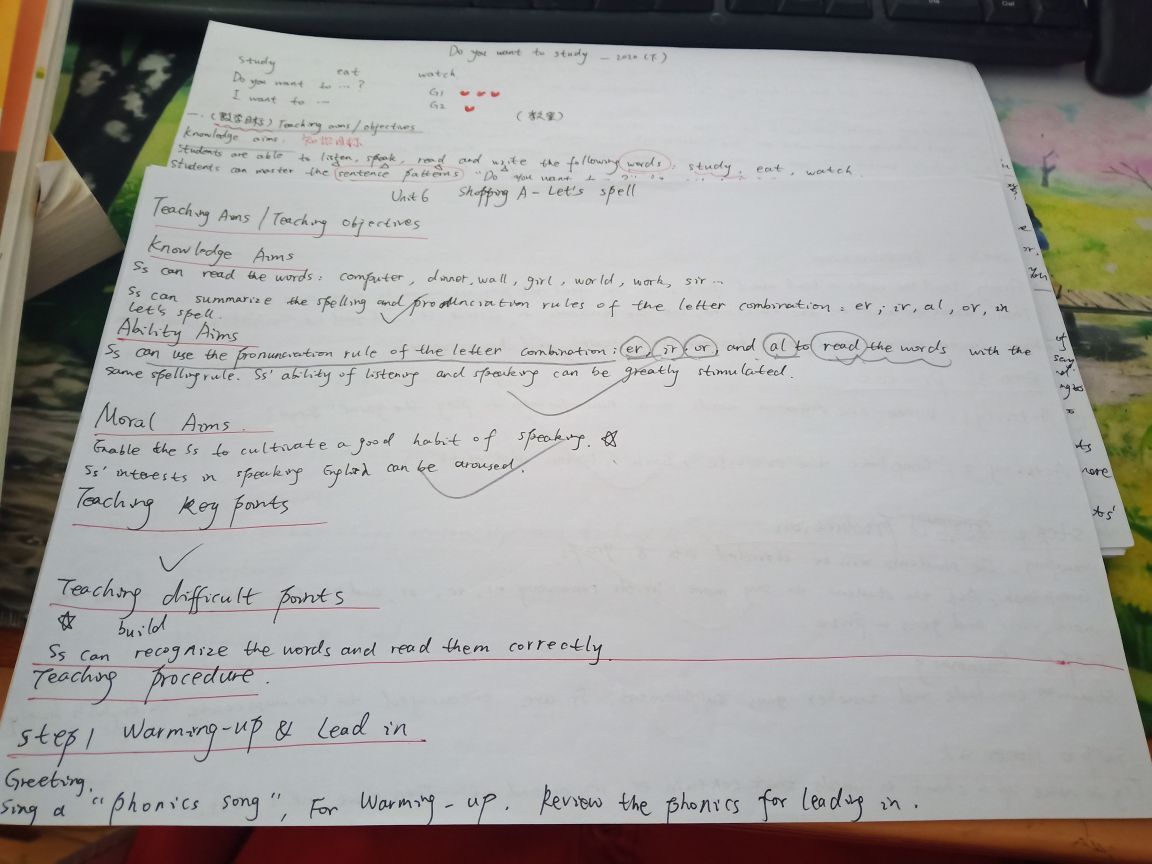 Do you want to study - 2020(下)
study eat watch
Do you want to ... ?
I want to ...
G1
G2
(教案)
一.(教学目标) Teaching aims/objectives
Knowledge aims. 知识目标
Students are able to listen, speak, read and write the following words: study, eat, watch
Students can master the sentence patterns "Do you want
Unit 6 Shopping A - Let's spell
Teaching Aims / Teaching objectives
Knowledge Aims
Ss can read the words: computer, dinner, wall, girl, world, work, sir ...
Ss can summarize the spelling and pronunciation rules of the letter combination: er; ir, al, or, in
Let's spell.
Ability Aims
Ss can use the pronunciation rule of the letter combination: er, ir, or, and al to read the words with the
same spelling rule. Ss' ability of listening and speaking can be greatly stimulated.
Moral Aims.
Enable the Ss to cultivate a good habit of speaking.
Ss' interests in speaking English can be aroused.
Teaching key points
Teaching difficult points
build
Ss can recognize the words and read them correctly.
Teaching Procedure.
Step 1 Warming-up & Lead in
Greeting.
Sing a "phonics song", For Warming-up. Review the phonics for leading in.